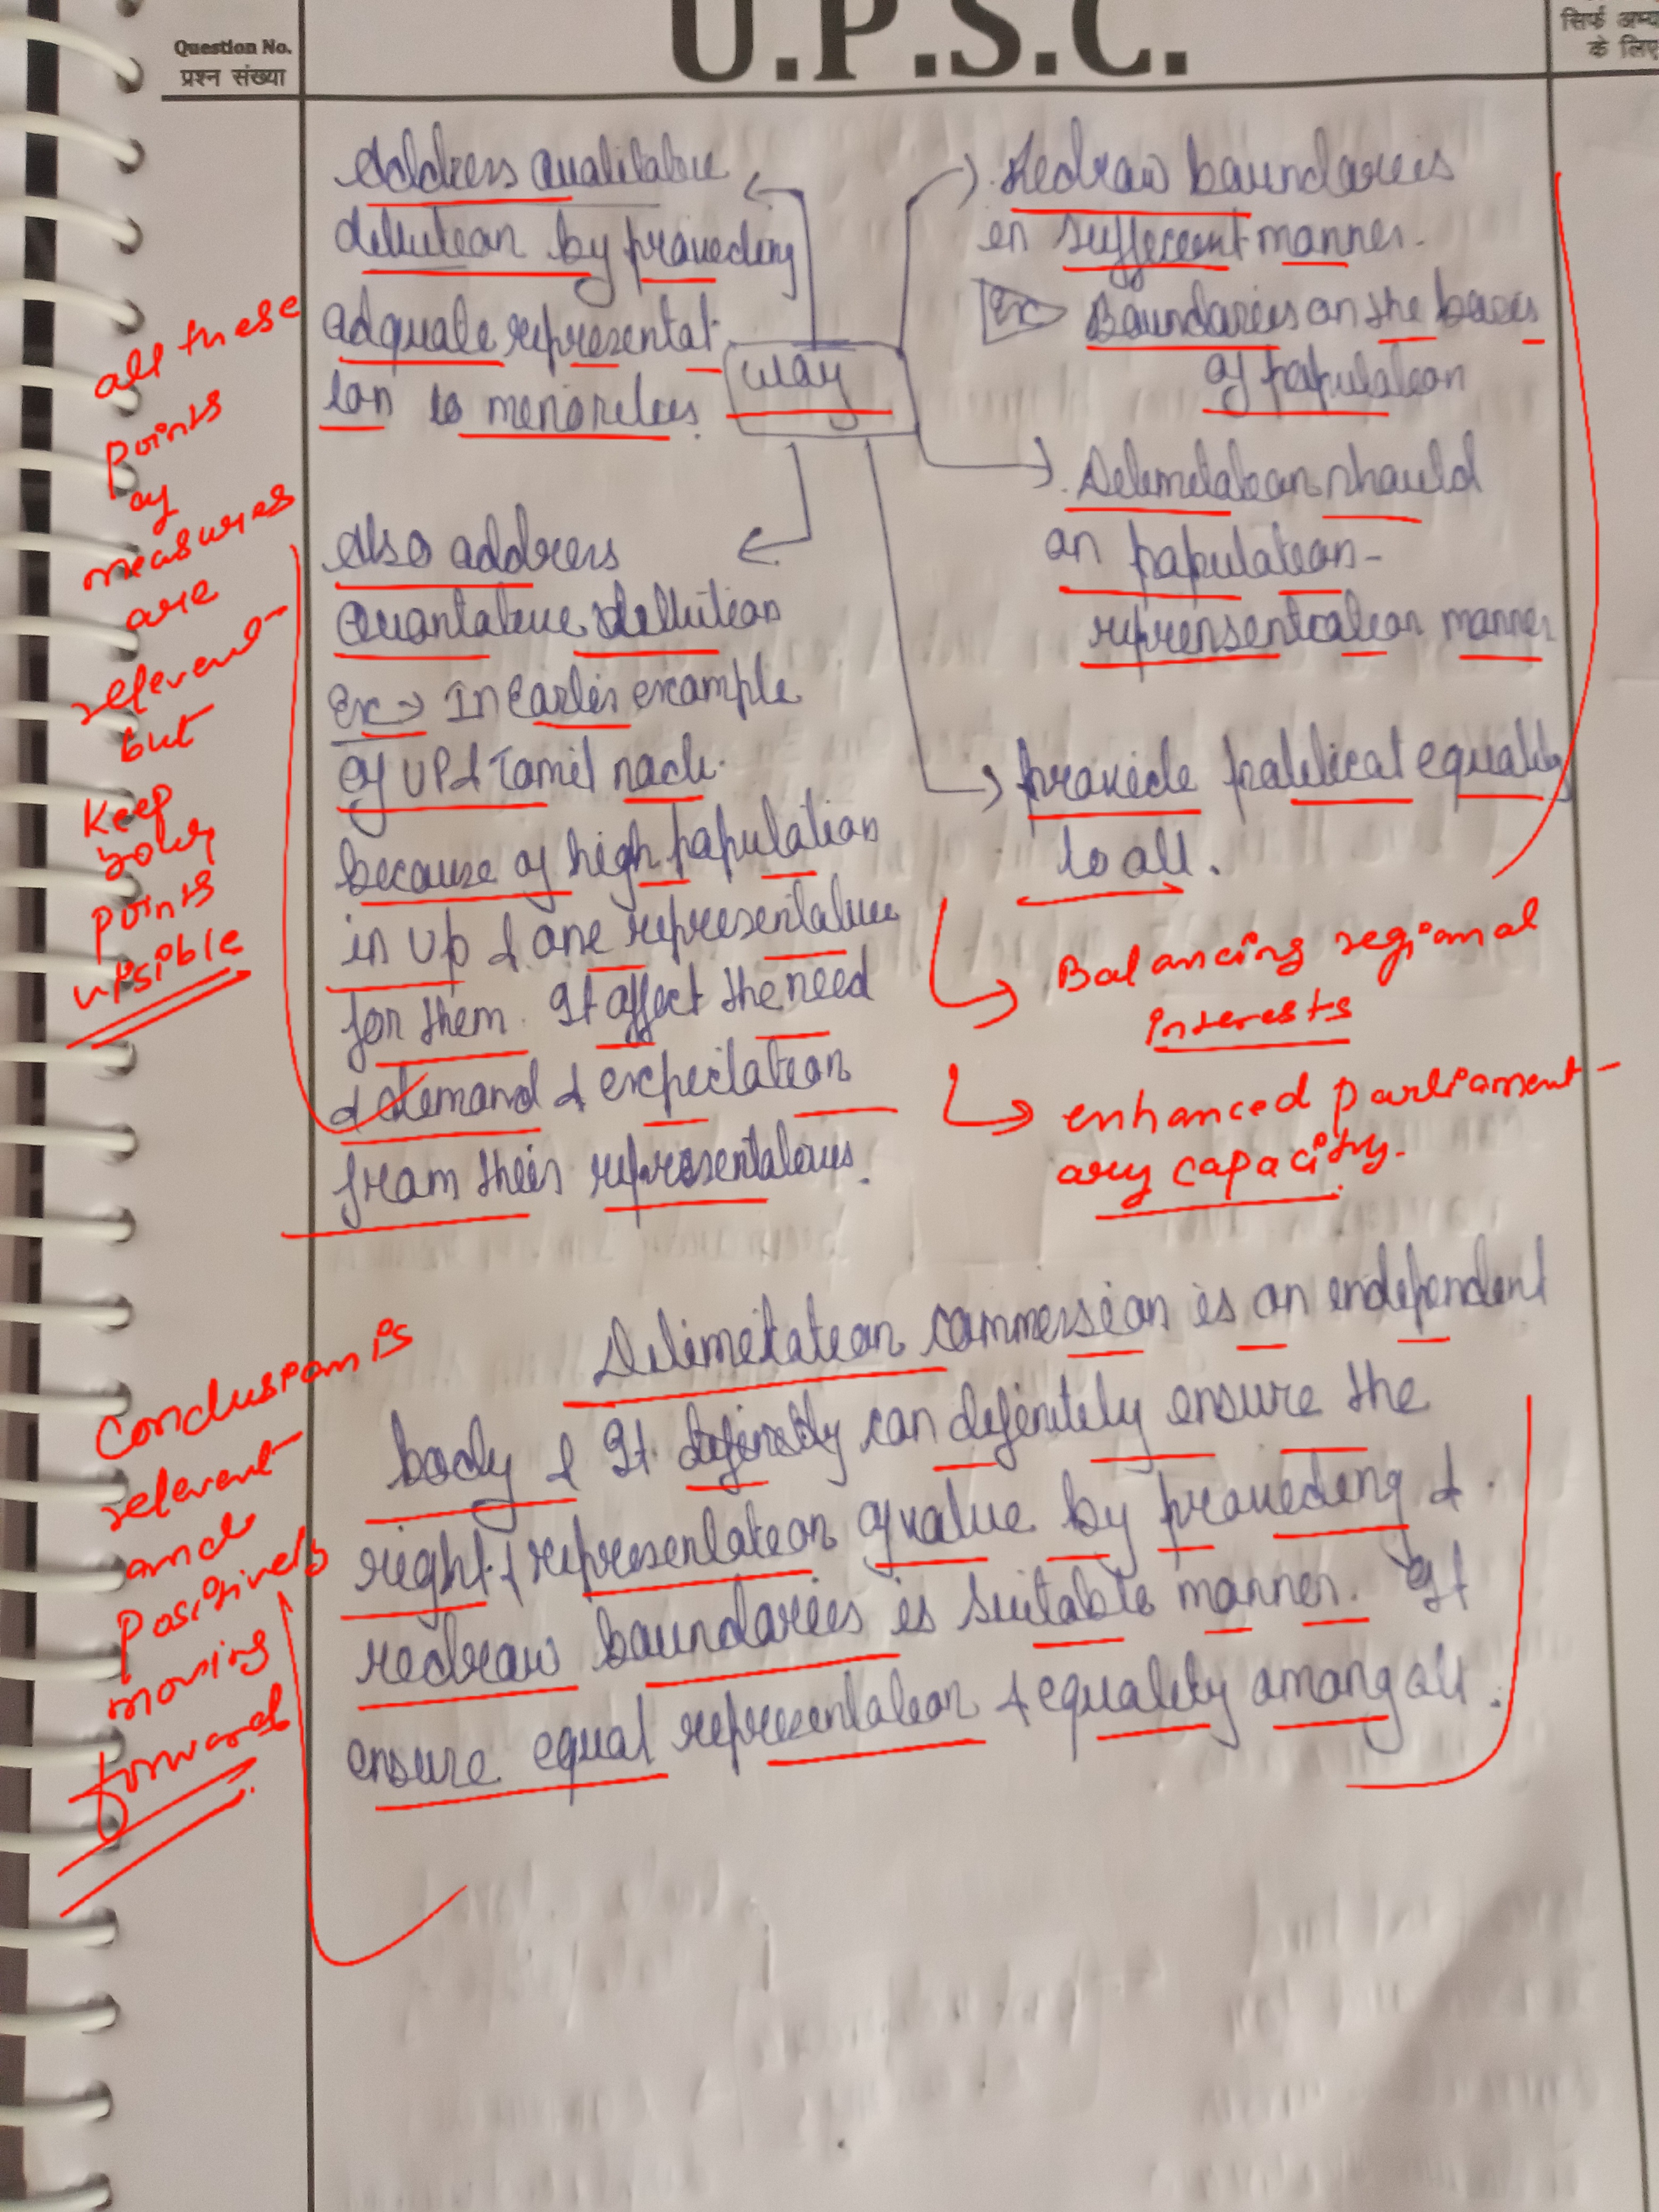 Question No.
प्रश्न संख्या
U.P.S.C.
सिर्फ अभ्य
के लिए
Address qualitative
dilution by providing
adquate representat
ion to minorities.
way
redraw boundaries
in sufficent manner.
Ex Boundaries on the bases
of population
Delimitation should
on population-
reprensentation manner
provide political equality
to all.
Also address
Quantative dilution
Ex → In Earlier example
of UP & Tamil nadu.
because of high population
in UP & one representative
for them. It affect the need
& demand & expectation
from their representatives.
all these
points
of
measures
are
relevent
but
keep
your
points
upsible
Balancing regional
interests
enhanced parliament-
ary capacity.
Delimitation commission is an independent
body & It definetly can definitely ensure the
right & representation of value by proveding &
redraw boundaries is suitable manner. It
ensure equal representation & equality among all.
Conclusion is
relevent
and
Positively
moving
forward